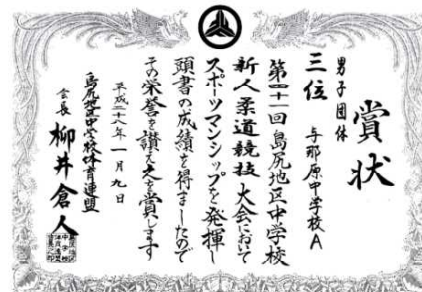 賞状
男子団体
三位 与那原中学校A
第二十一回島尻地区中学校
新人柔道競技大会において
スポーツマンシップを発揮し
頭書の成績を得ましたので
その栄誉を讃え之を賞します
平成二十八年一月九日
島尻地区中学校体育連盟
会長 柳井倉人